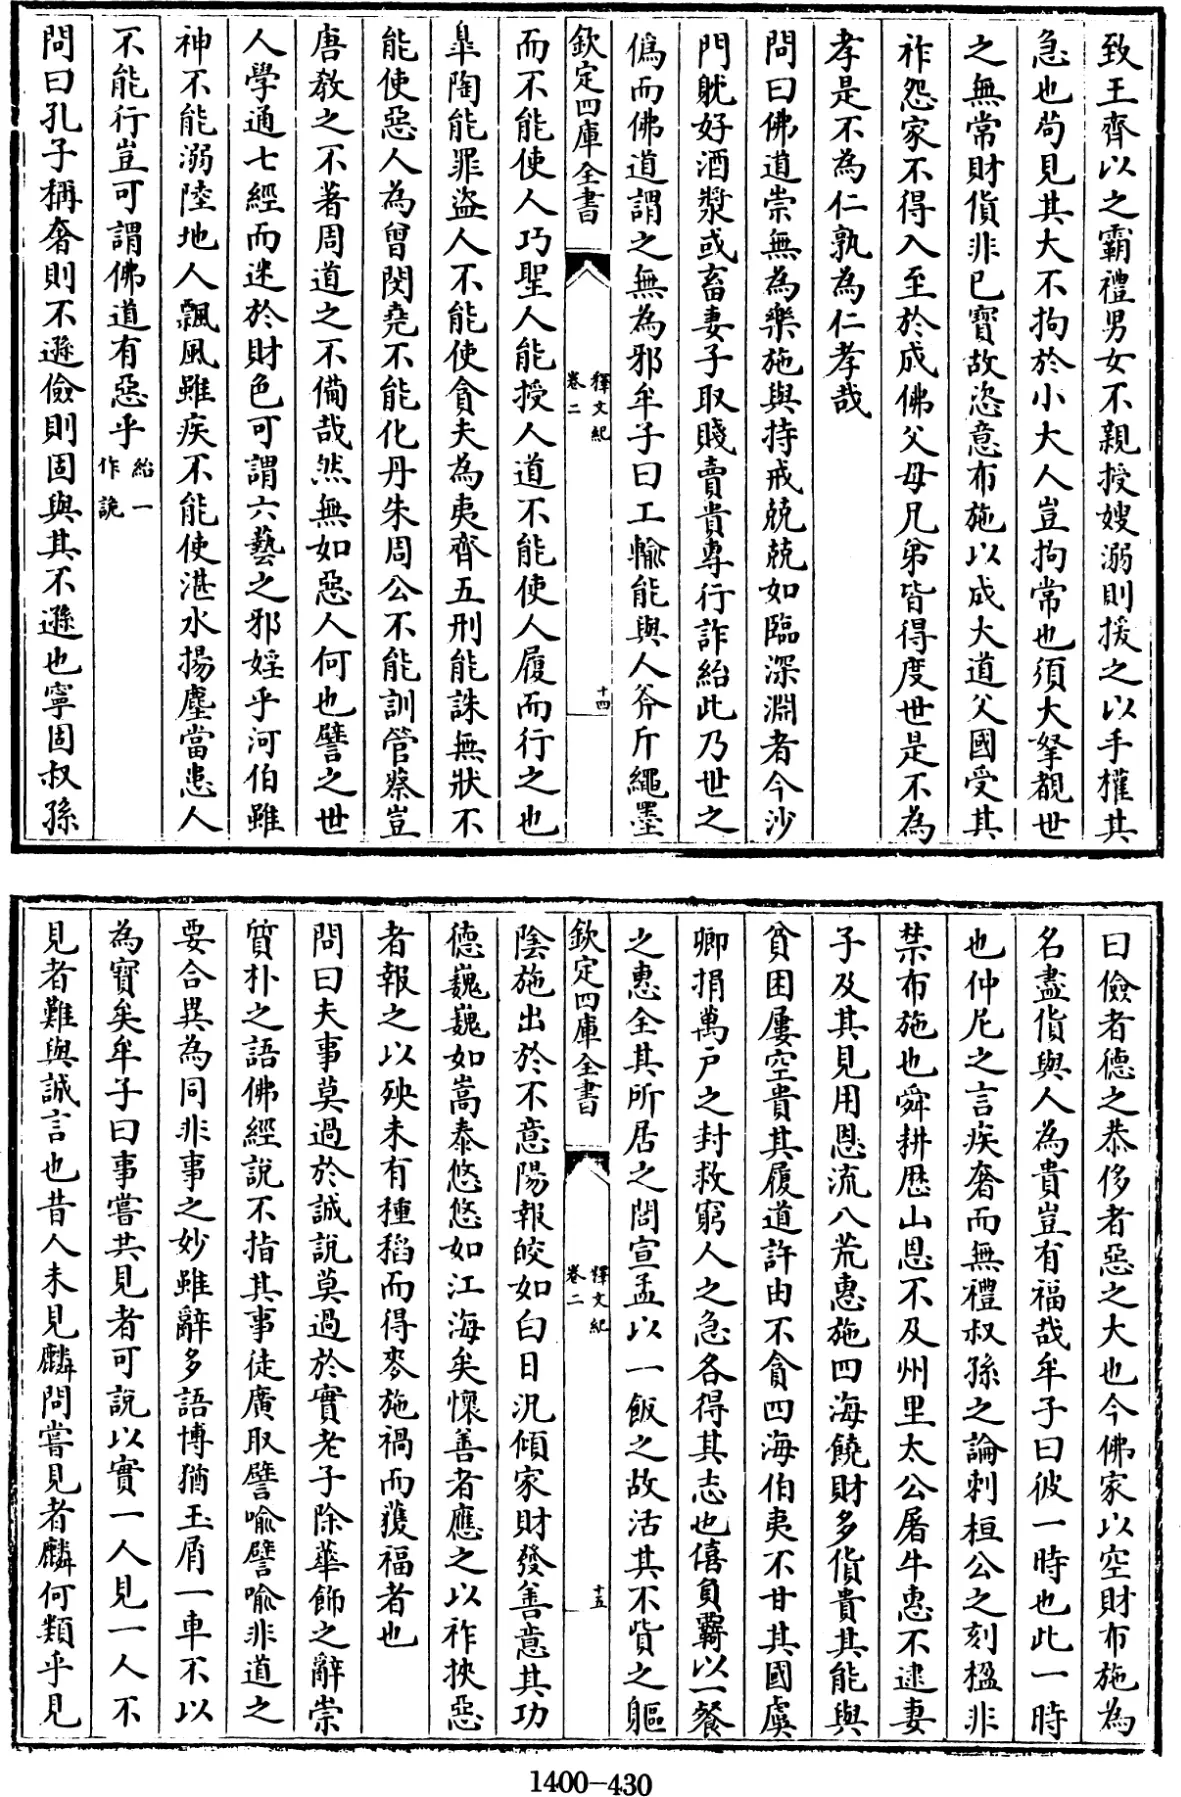 致王齊以之霸禮男女不親授嫂溺則援之以手權其
急也茍見其大不拘於小大人豈拘常也須大拏覩世
之無常財貨非已寳故恣意布施以成大道父國受其
祚怨家不得入至於成佛父母兄弟皆得度世是不為
孝是不為仁孰為仁孝哉
問曰佛道崇無為樂施與持戒兢兢如臨深淵者今沙
門躭好酒漿或畜妻子取賤賣貴専行詐紿此乃世之
偽而佛道謂之無為邪牟子曰工輸能與人斧斤繩墨
欽定四庫全書
釋文紀
卷二
十四
而不能使人巧聖人能授人道不能使人履而行之也
臯陶能罪盜人不能使貪夫為夷齊五刑能誅無狀不
能使惡人為曾閔堯不能化丹朱周公不能訓管蔡豈
唐教之不著周道之不備哉然無如惡人何也譬之世
人學通七經而迷於財色可謂六藝之邪婬乎河伯雖
神不能溺陸地人飄風雖疾不能使湛水揚塵當患人
不能行豈可謂佛道有惡乎
紿一
作說
問曰孔子稱奢則不遜儉則固與其不遜也寧固叔孫
曰儉者德之恭侈者惡之大也今佛家以空財布施為
名盡貨與人為貴豈有福哉牟子曰彼一時也此一時
也仲尼之言疾奢而無禮叔孫之論刺桓公之刻楹非
禁布施也舜耕歴山恩不及州里太公屠牛惠不逮妻
子及其見用恩流八荒惠施四海饒財多貨貴其能與
貧困屢空貴其履道許由不貪四海伯夷不甘其國虞
卿捐萬戶之封救窮人之急各得其志也僖負羈以一餐
之惠全其所居之閭宣孟以一飯之故活其不貲之軀
欽定四庫全書
釋文紀
卷二
十五
陰施出於不意陽報皎如白日況傾家財發善意其功
德巍巍如嵩泰悠悠如江海矣懷善者應之以祚挾惡
者報之以殃未有種稻而得麥施禍而獲福者也
問曰夫事莫過於誠說莫過於實老子除華飾之辭崇
質朴之語佛經說不指其事徒廣取譬喻譬喻非道之
要合異為同非事之妙雖辭多語博猶玉屑一車不以
為寳矣牟子曰事嘗共見者可說以實一人見一人不
見者難與誠言也昔人未見麟問嘗見者麟何類乎見
1400-430